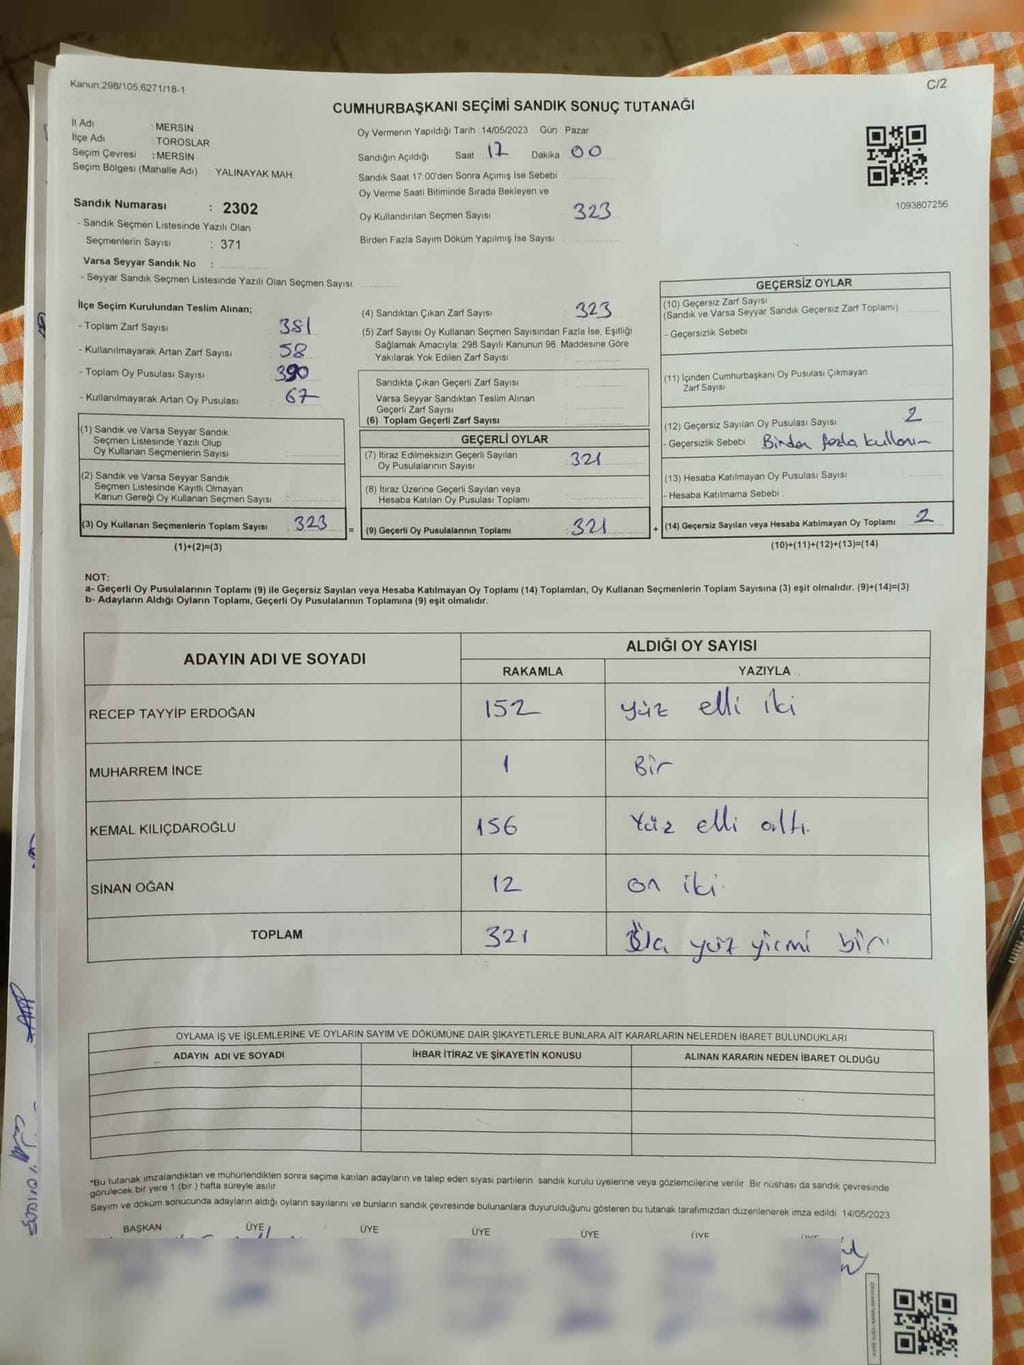 Kanun:298/105,6271/18-1
C/2
CUMHURBAŞKANI SEÇİMİ SANDIK SONUÇ TUTANAĞI
İl Adı : MERSİN
İlçe Adı : TOROSLAR
Seçim Çevresi : MERSİN
Seçim Bölgesi (Mahalle Adı) YALINAYAK MAH.
Oy Vermenin Yapıldığı Tarih :14/05/2023 Gün Pazar
Sandığın Açıldığı Saat 17 Dakika 00
Sandık Saat 17.00'den Sonra Açımış İse Sebebi
Oy Verme Saati Bitiminde Sırada Bekleyen ve
Oy Kullandırılan Seçmen Sayısı 323
Birden Fazla Sayım Döküm Yapılmış İse Sayısı
1093807256
Sandık Numarası : 2302
- Sandık Seçmen Listesinde Yazılı Olan
Seçmenlerin Sayısı : 371
Varsa Seyyar Sandık No :
- Seyyar Sandık Seçmen Listesinde Yazılı Olan Seçmen Sayısı:
İlçe Seçim Kurulundan Teslim Alınan;
- Toplam Zarf Sayısı 381
- Kullanılmayarak Artan Zarf Sayısı 58
- Toplam Oy Pusulası Sayısı 390
- Kullanılmayarak Artan Oy Pusulası 67
(1) Sandık ve Varsa Seyyar Sandık
Seçmen Listesinde Yazılı Olup
Oy Kullanan Seçmenlerin Sayısı
(2) Sandık ve Varsa Seyyar Sandık
Seçmen Listesinde Kayıtlı Olmayan
Kanun Gereği Oy Kullanan Seçmen Sayısı
(3) Oy Kullanan Seçmenlerin Toplam Sayısı : 323 =
(1)+(2)=(3)
(4) Sandıktan Çıkan Zarf Sayısı 323
(5) Zarf Sayısı Oy Kullanan Seçmen Sayısından Fazla İse, Eşitliği
Sağlamak Amacıyla; 298 Sayılı Kanunun 98. Maddesine Göre
Yakılarak Yok Edilen Zarf Sayısı
Sandıkta Çıkan Geçerli Zarf Sayısı
Varsa Seyyar Sandıktan Teslim Alınan
Geçerli Zarf Sayısı
(6) Toplam Geçerli Zarf Sayısı
GEÇERLİ OYLAR
(7) İtiraz Edilmeksizin Geçerli Sayılan
Oy Pusulalarının Sayısı 321
(8) İtiraz Üzerine Geçerli Sayılan veya
Hesaba Katılan Oy Pusulası Toplamı
(9) Geçerli Oy Pusulalarının Toplamı : 321 +
GEÇERSİZ OYLAR
(10) Geçersiz Zarf Sayısı
(Sandık ve Varsa Seyyar Sandık Geçersiz Zarf Toplamı)
- Geçersizlik Sebebi
(11) İçinden Cumhurbaşkanı Oy Pusulası Çıkmayan
Zarf Sayısı
(12) Geçersiz Sayılan Oy Pusulası Sayısı 2
- Geçersizlik Sebebi Birden fazla kullanım
(13) Hesaba Katılmayan Oy Pusulası Sayısı
- Hesaba Katılmama Sebebi
(14) Geçersiz Sayılan veya Hesaba Katılmayan Oy Toplamı 2
(10)+(11)+(12)+(13)=(14)
NOT:
a- Geçerli Oy Pusulalarının Toplamı (9) ile Geçersiz Sayılan veya Hesaba Katılmayan Oy Toplamı (14) Toplamları, Oy Kullanan Seçmenlerin Toplam Sayısına (3) eşit olmalıdır. (9)+(14)=(3)
b- Adayların Aldığı Oyların Toplamı, Geçerli Oy Pusulalarının Toplamına (9) eşit olmalıdır.
ADAYIN ADI VE SOYADI
ALDIĞI OY SAYISI
RAKAMLA YAZIYLA
RECEP TAYYİP ERDOĞAN 152 yüz elli iki
MUHARREM İNCE 1 Bir
KEMAL KILIÇDAROĞLU 156 Yüz elli altı.
SİNAN OĞAN 12 on iki.
TOPLAM 321 yüz yirmi bir
OYLAMA İŞ VE İŞLEMLERİNE VE OYLARIN SAYIM VE DÖKÜMÜNE DAİR ŞİKAYETLERLE BUNLARA AİT KARARLARIN NELERDEN İBARET BULUNDUKLARI
ADAYIN ADI VE SOYADI İHBAR İTİRAZ VE ŞİKAYETİN KONUSU ALINAN KARARIN NEDEN İBARET OLDUĞU
*Bu tutanak imzalandıktan ve mühürlendikten sonra seçime katılan adayların ve talep eden siyasi partilerin. sandık kurulu üyelerine veya gözlemcilerine verilir. Bir nüshası da sandık çevresinde
görülecek bir yere 1 (bir ) hafta süreyle asılır.
Sayım ve döküm sonucunda adayların aldığı oyların sayılarını ve bunların sandık çevresinde bulunanlara duyurulduğunu gösteren bu tutanak tarafımızdan düzenlenerek imza edildi. 14/05/2023
BAŞKAN ÜYE ÜYE ÜYE ÜYE ÜYE ÜYE